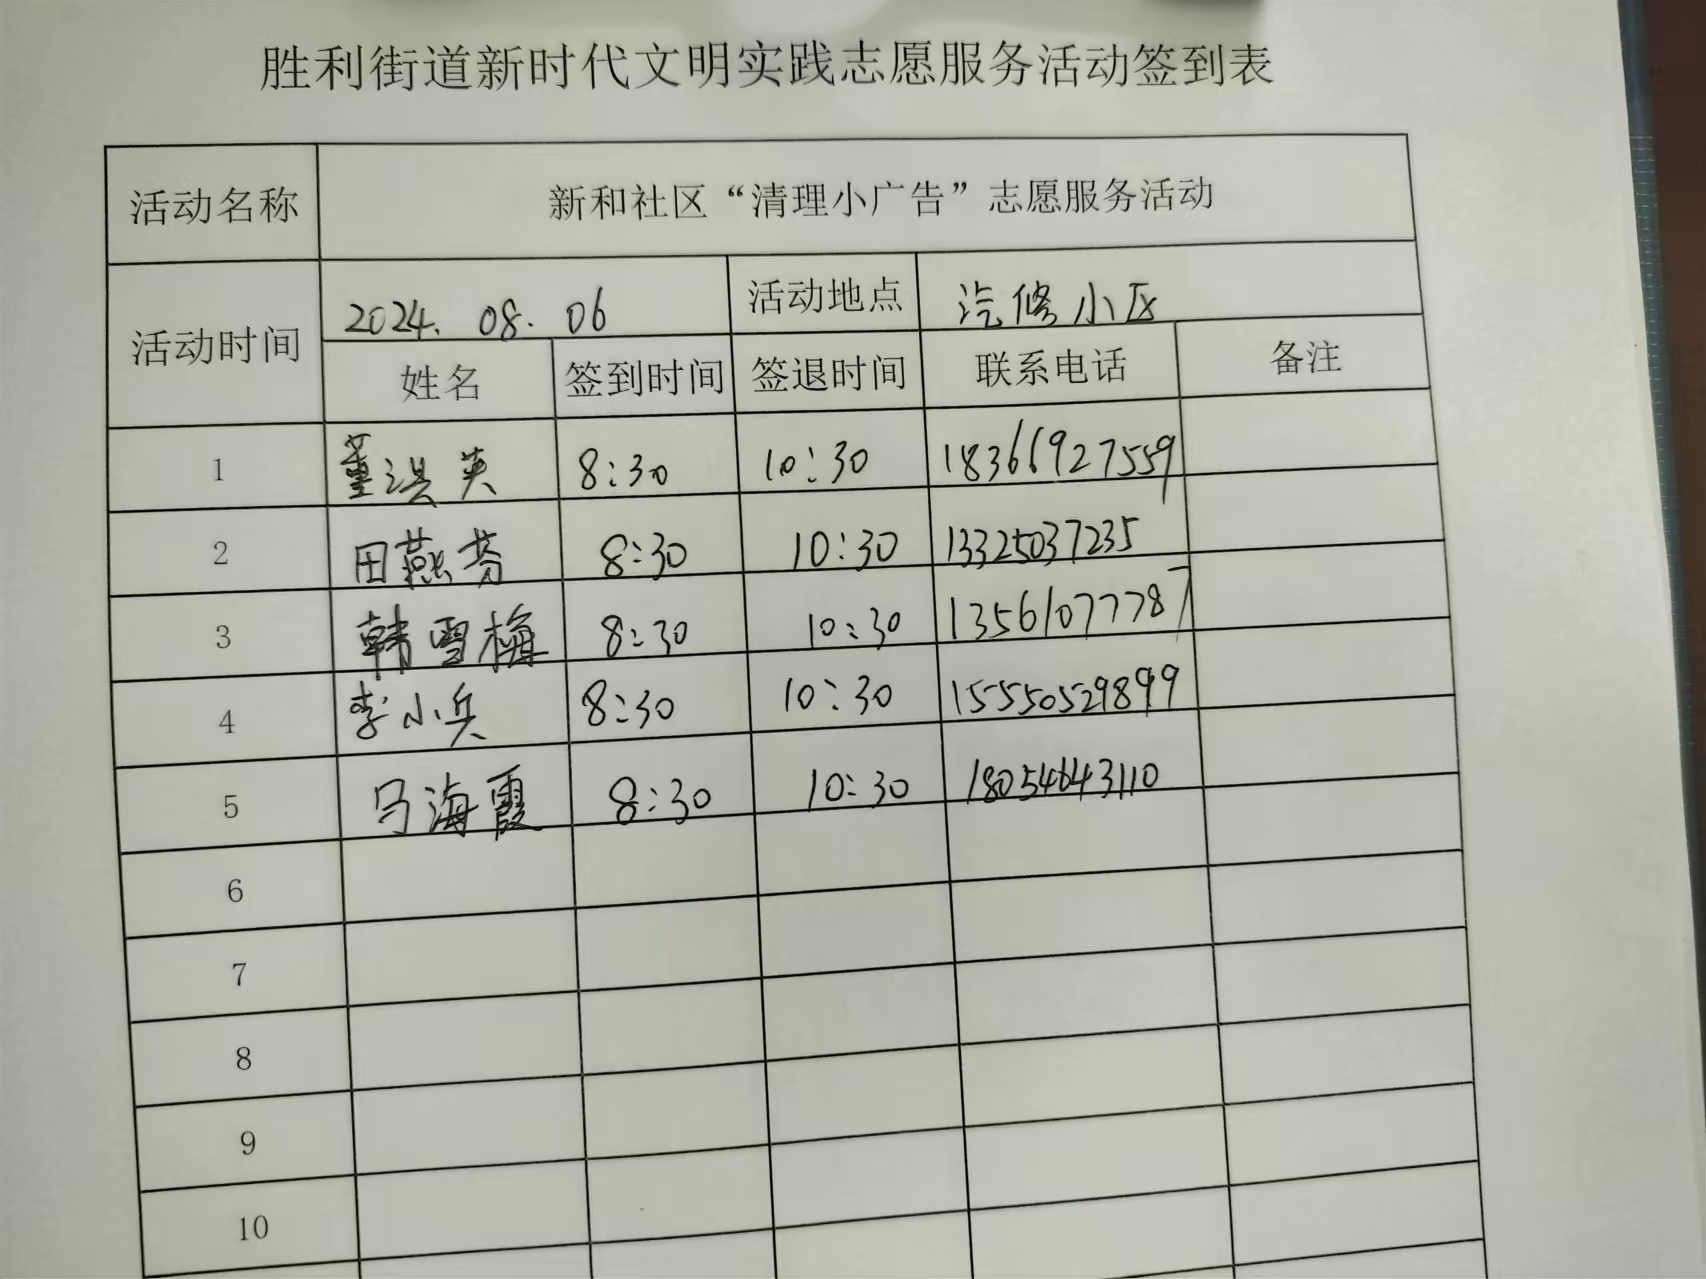 胜利街道新时代文明实践志愿服务活动签到表
活动名称 新和社区“清理小广告”志愿服务活动
活动时间 2024.08.06 活动地点 汽修小区
姓名 签到时间 签退时间 联系电话 备注
1 董洪英 8:30 10:30 18366927559
2 田燕芬 8:30 10:30 13325037235
3 韩雪梅 8:30 10:30 13561077787
4 李小兵 8:30 10:30 15550529899
5 马海霞 8:30 10:30 18054643110
6
7
8
9
10